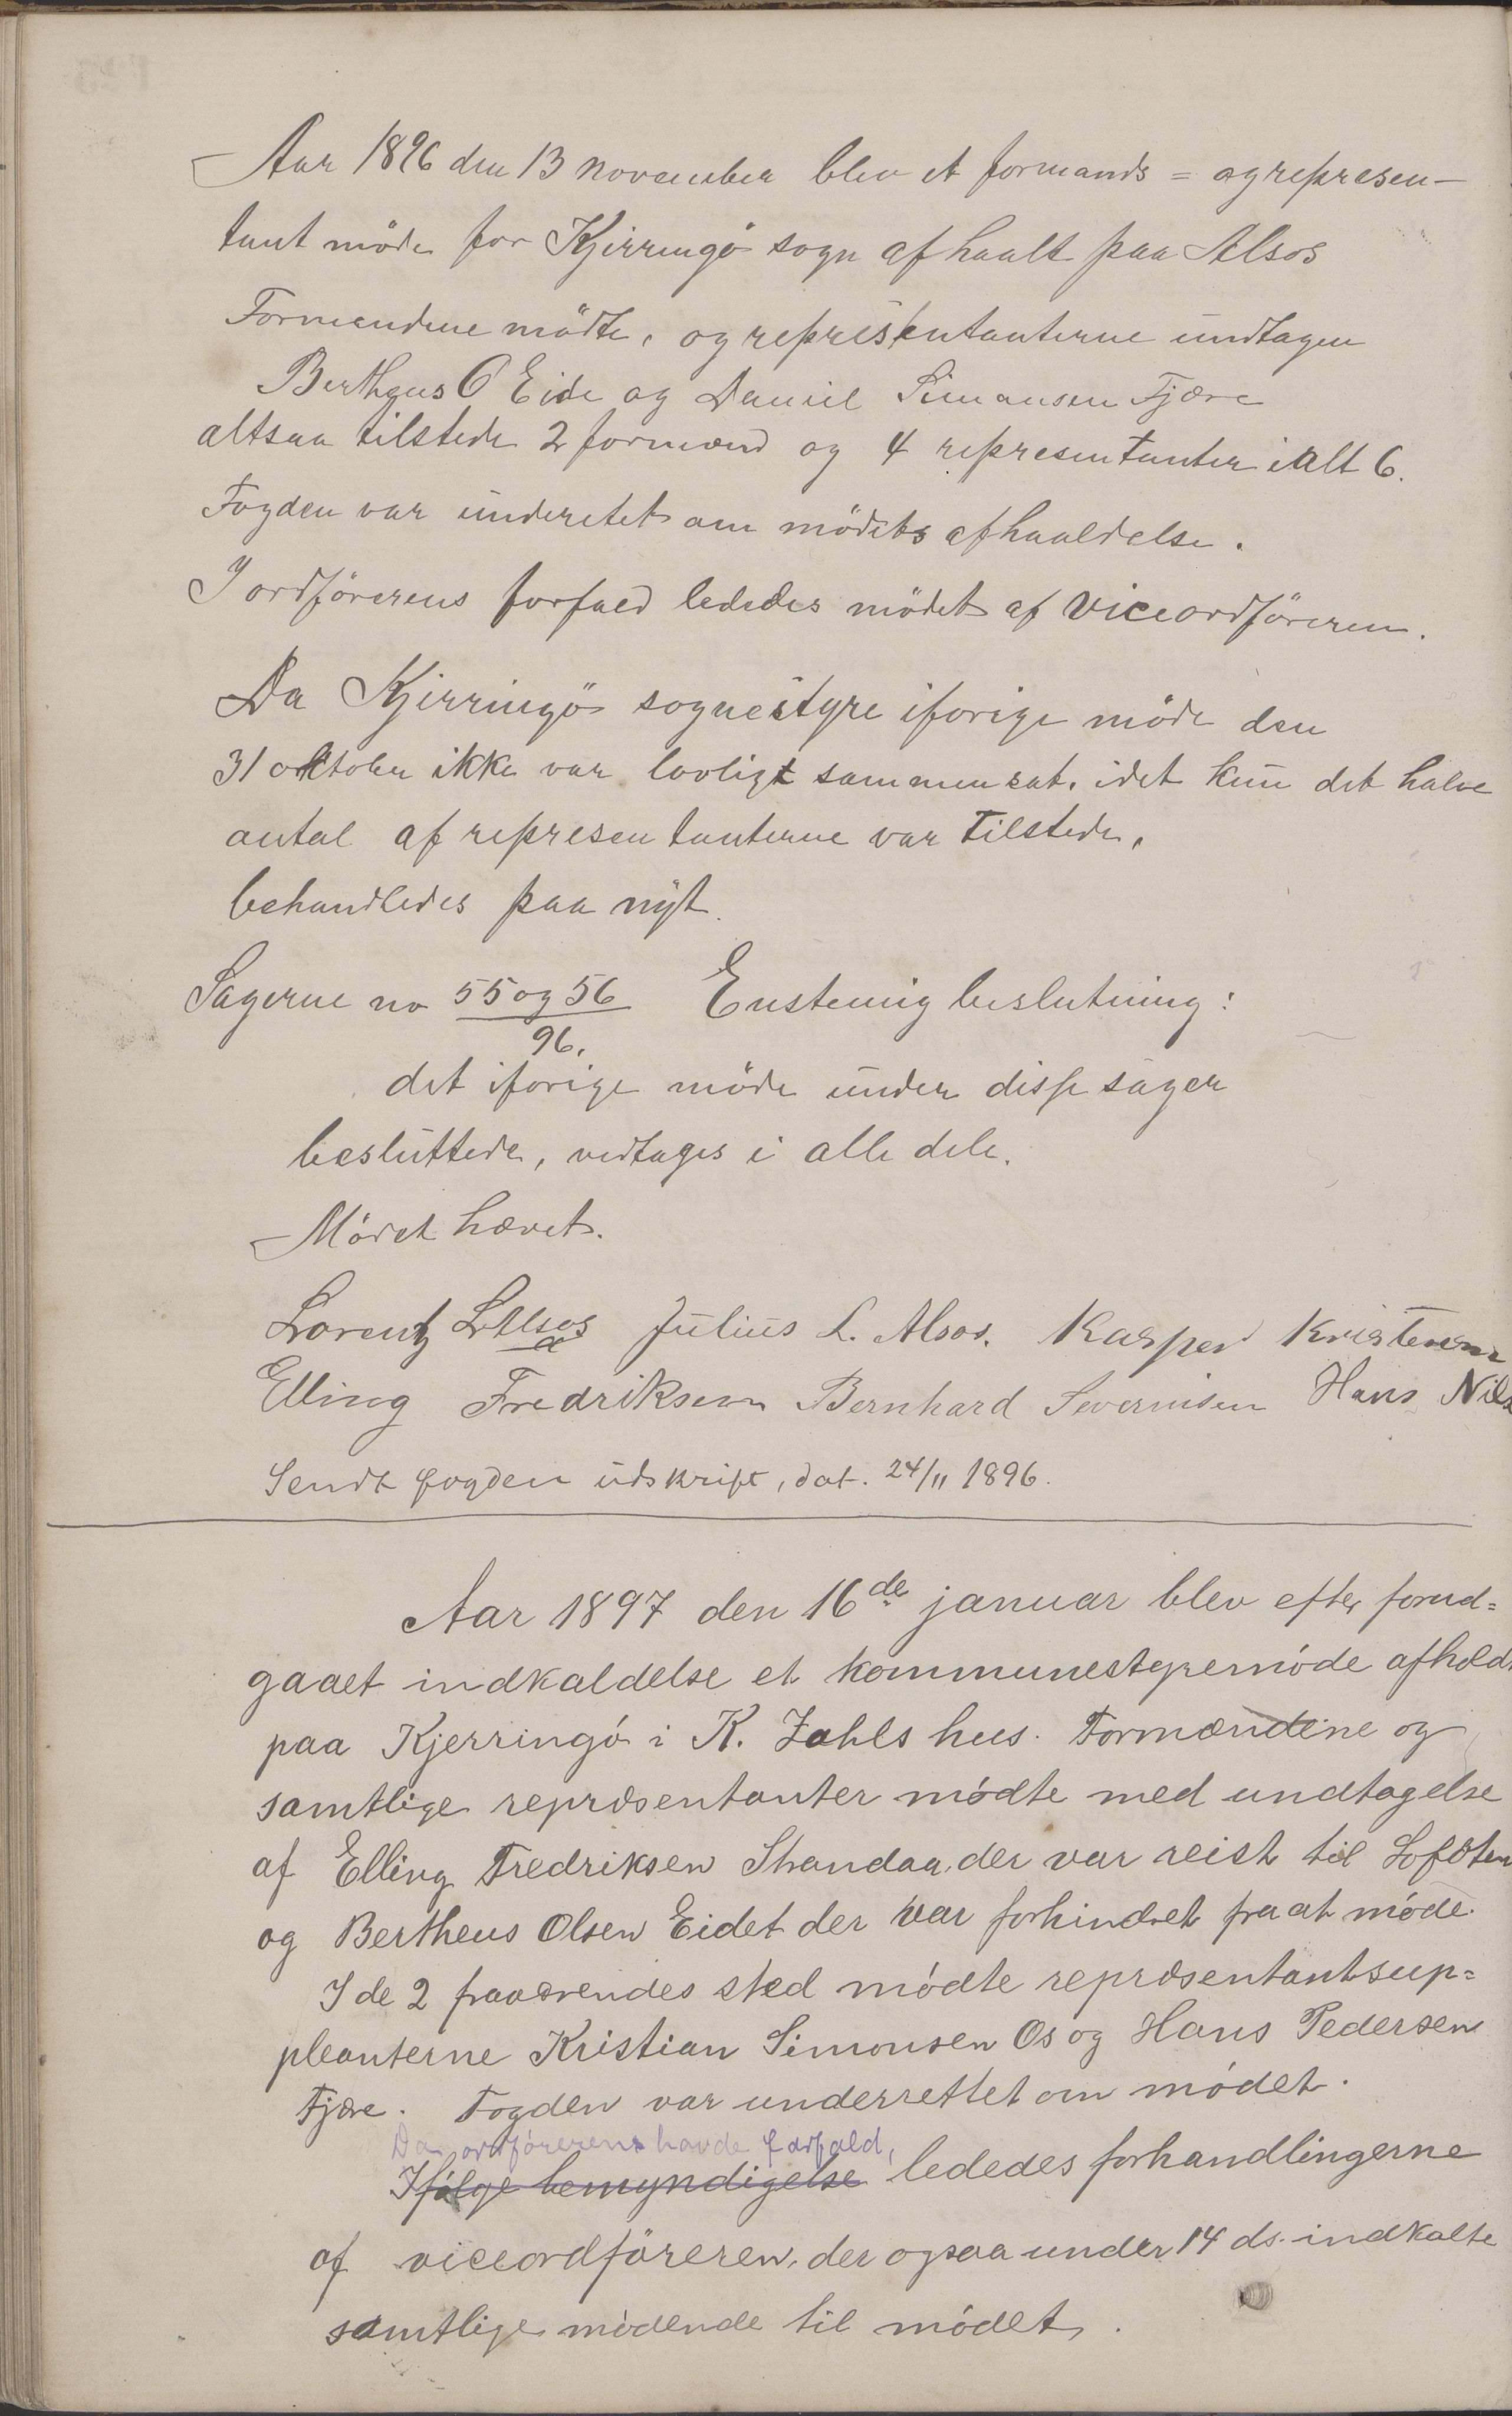 Aar 1896 den 13 november blev et formands = og represen-
tant möde for Kjirringö sogn afhaalt paa Alsos
Formendene mödte, og representanterne undtagen
Bertheus O Eide og Daniel Simonsen Fjære
altsaa tilstede 2 formænd og 4 representanter ialt 6.
Fogden var underetet om mödets afhaaldelse.
I ordförerens forfald lededes mödet af viceordföreren.
Da Kjirringö sognestyre iforige möde den
31 oktober ikke var lovligt sammensat, idet kun det halve
antal af representanterne var tilstede,
behandledes paa nyt.
Sagerne no 55 og 56/96. Enstemig beslutning:
det iforige möde under disse sager
besluttede, vedtages i alle dele.
Mödet hævet.
Lorentz L Alsos Julius L. Alsos. Kasper Kristensen
Elling Fredriksen Bernhard Severinsen Hans Nils
Sendt fogden udskrift, dat. 24/11 1896.
Aar 1897 den 16de januar blev efter forud=
gaaet indkaldelse et kommunestyremöde afholdt
paa Kjerringö i K. Zahls hus. Formændene og
samtlige repræsentanter mödte med undtagelse
af Elling Fredriksen Strandaa, der var reist til Lofoten
og Bertheus Olsen Eidet der var forhindret fra at möde.
I de 2 fraværendes sted mödte repræsentantsup=
pleanterne Kristian Simonsen Os og Hans Pedersen
Fjære. Fogden var underrettet om mödet.
Da ordförerens havde forfald,
Ifölge bemyndigelse lededes forhandlingerne
af viceordföreren, der ogsaa under 14 ds. indkalte
samtlige mödende til mödet.